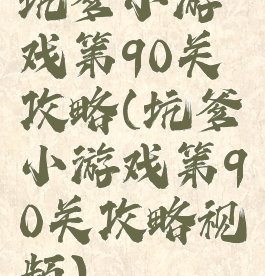 坑爹小游
戏第90关
攻略(坑爹
小游戏第9
0关攻略视
频)